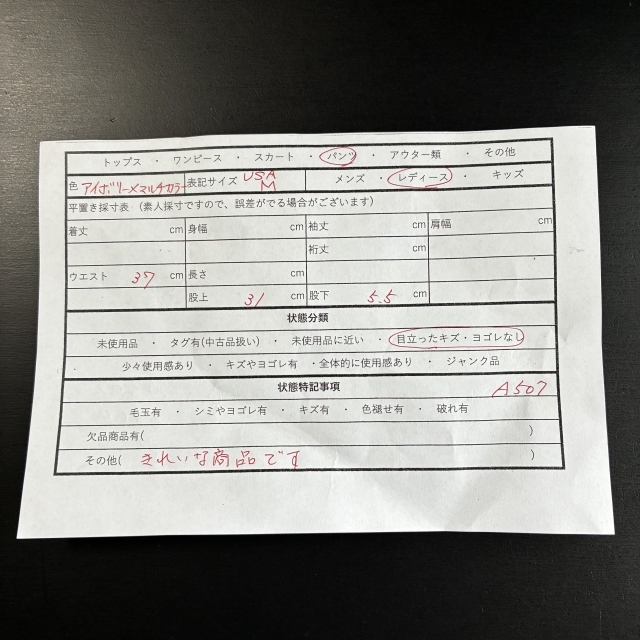 トップス ・ ワンピース ・ スカート ・ パンツ ・ アウター類 ・ その他
色 アイボリー×マルチカラー 表記サイズ USA M メンズ ・ レディース ・ キッズ
平置き採寸表 (素人採寸ですので、誤差がでる場合がございます)
着丈 cm 身幅 cm 袖丈 cm 肩幅 cm
裄丈 cm
ウエスト 37 cm 長さ cm
股上 31 cm 股下 5.5 cm
状態分類
未使用品 ・ タグ有(中古品扱い) ・ 未使用品に近い ・ 目立ったキズ・ヨゴレなし
・ 少々使用感あり ・ キズやヨゴレ有 ・全体的に使用感あり ・ ジャンク品
状態特記事項 A507
毛玉有 ・ シミやヨゴレ有 ・ キズ有 ・ 色褪せ有 ・ 破れ有
欠品商品有( )
その他( きれいな商品です )